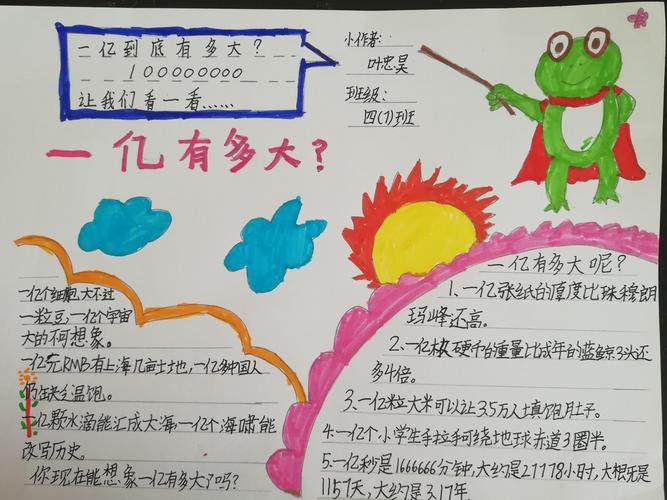 一亿到底有多大？
100000000
让我们看一看……
小作者：
叶忠昊
班级：
四(7)班
一亿有多大？
一亿个细胞，大不过
一粒豆，一亿个宇宙
大的不可想象。
一亿元RMB有上海几亩土地，一亿多中国人
仍在缺乏温饱。
一亿颗水滴能汇成大海，一亿个海啸能
改写历史。
你现在能想象一亿有多大了吗？
一亿有多大呢？
1、一亿张纸的厚度比珠穆朗
玛峰还高。
2、一亿枚硬币的重量比成年的蓝鲸3头还
多4倍。
3、一亿粒大米可以让35万人填饱肚子。
4.一亿个小学生手拉手可绕地球赤道3圈半。
5.一亿秒是1666666分钟，大约是27778小时，大概是
1157天，大约是3.17年。